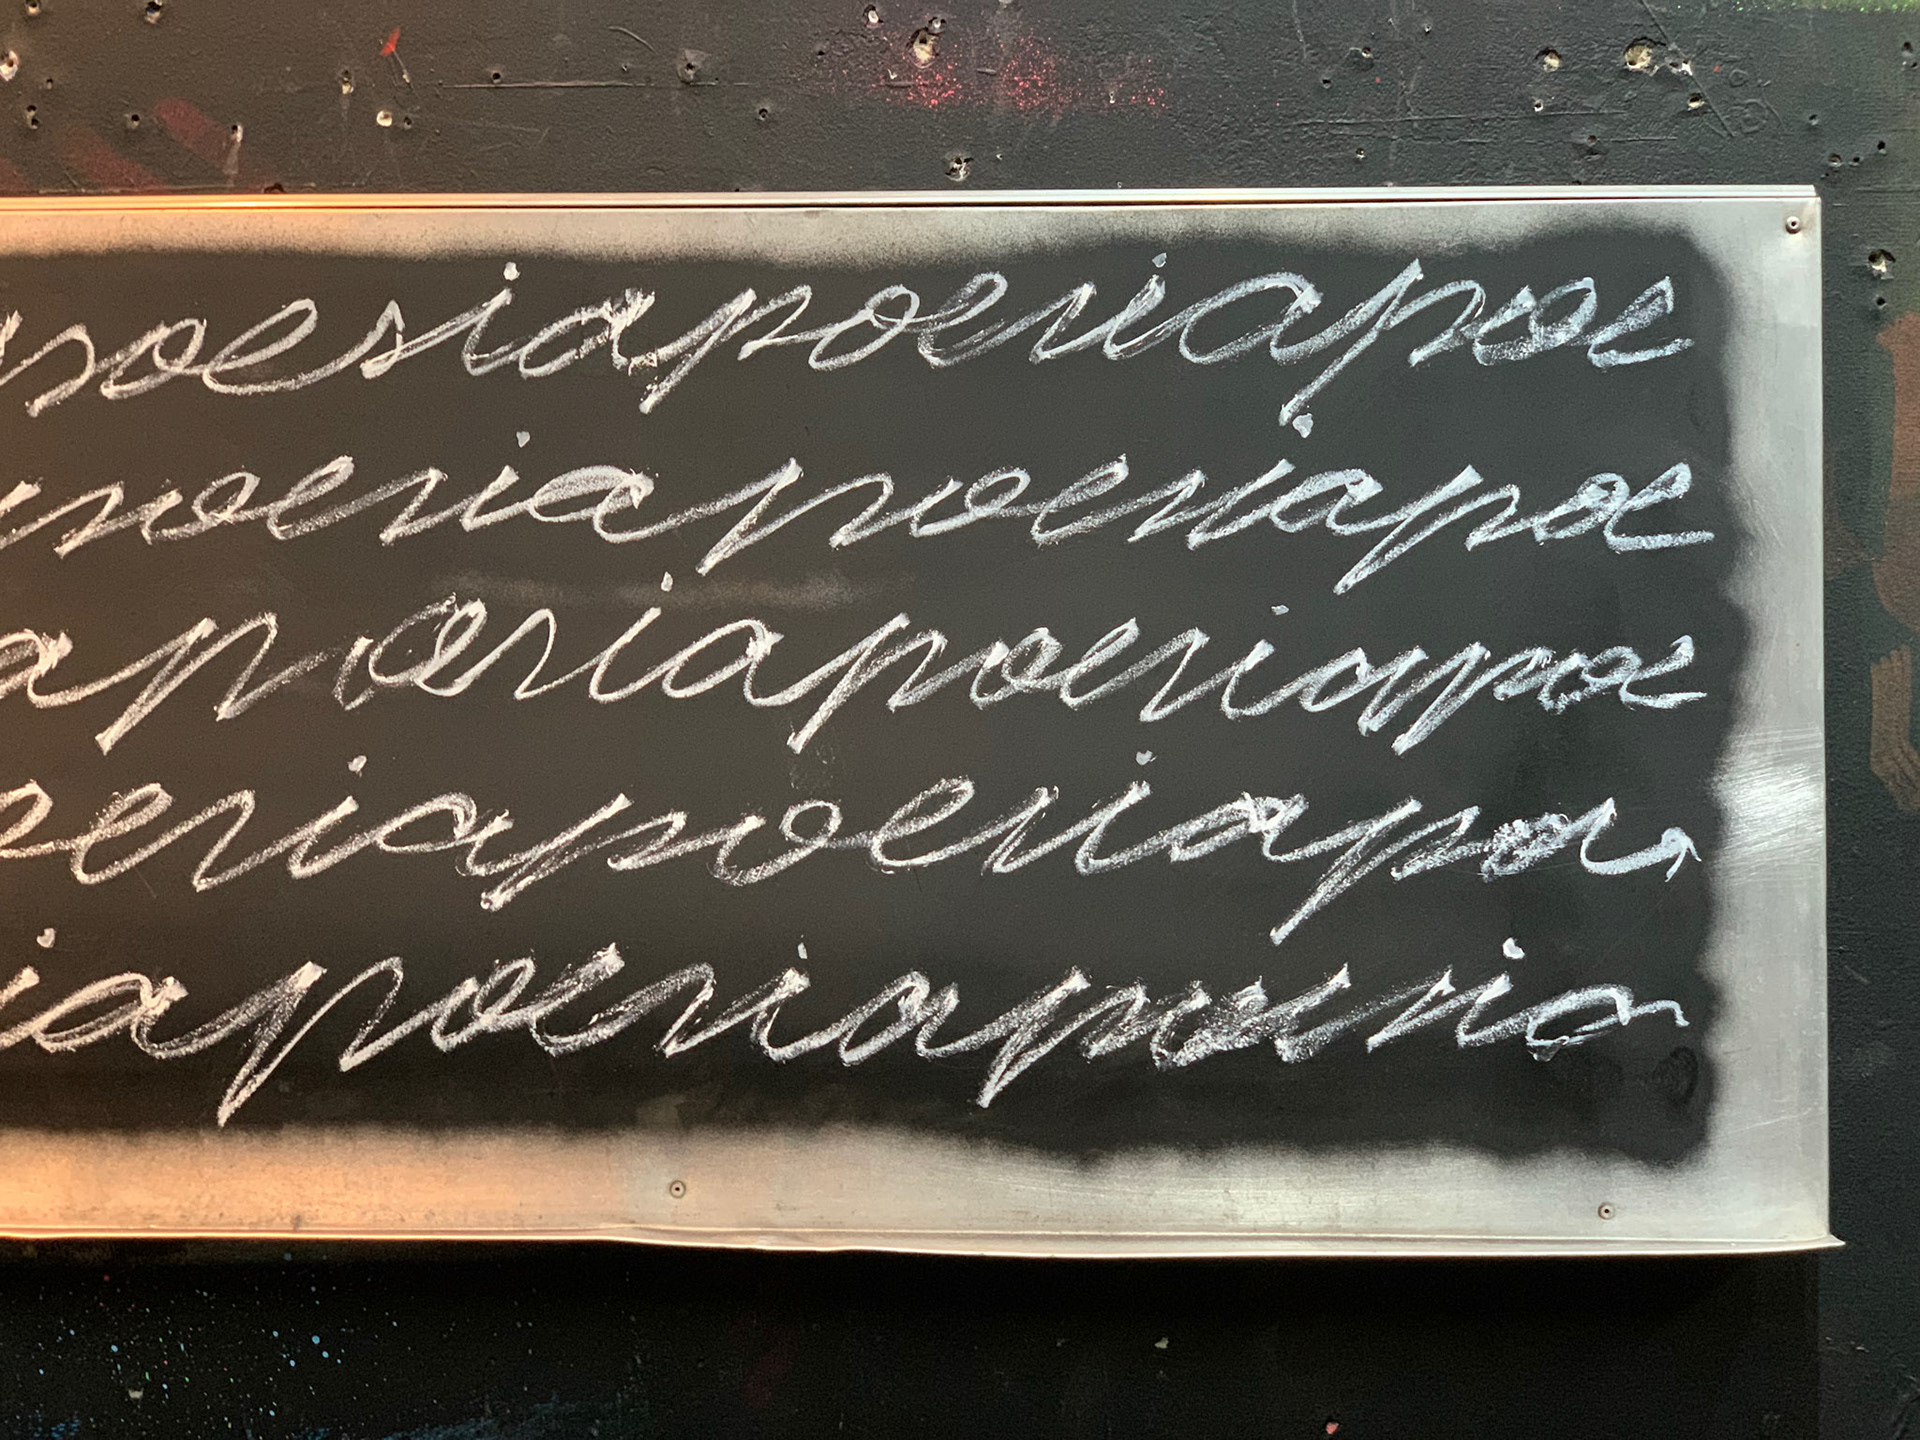 poesiapoesiapoe
poesiapoesiapoe
apoesiapoesiapoe
oesiapoesiapoes
iapoesiapoesia